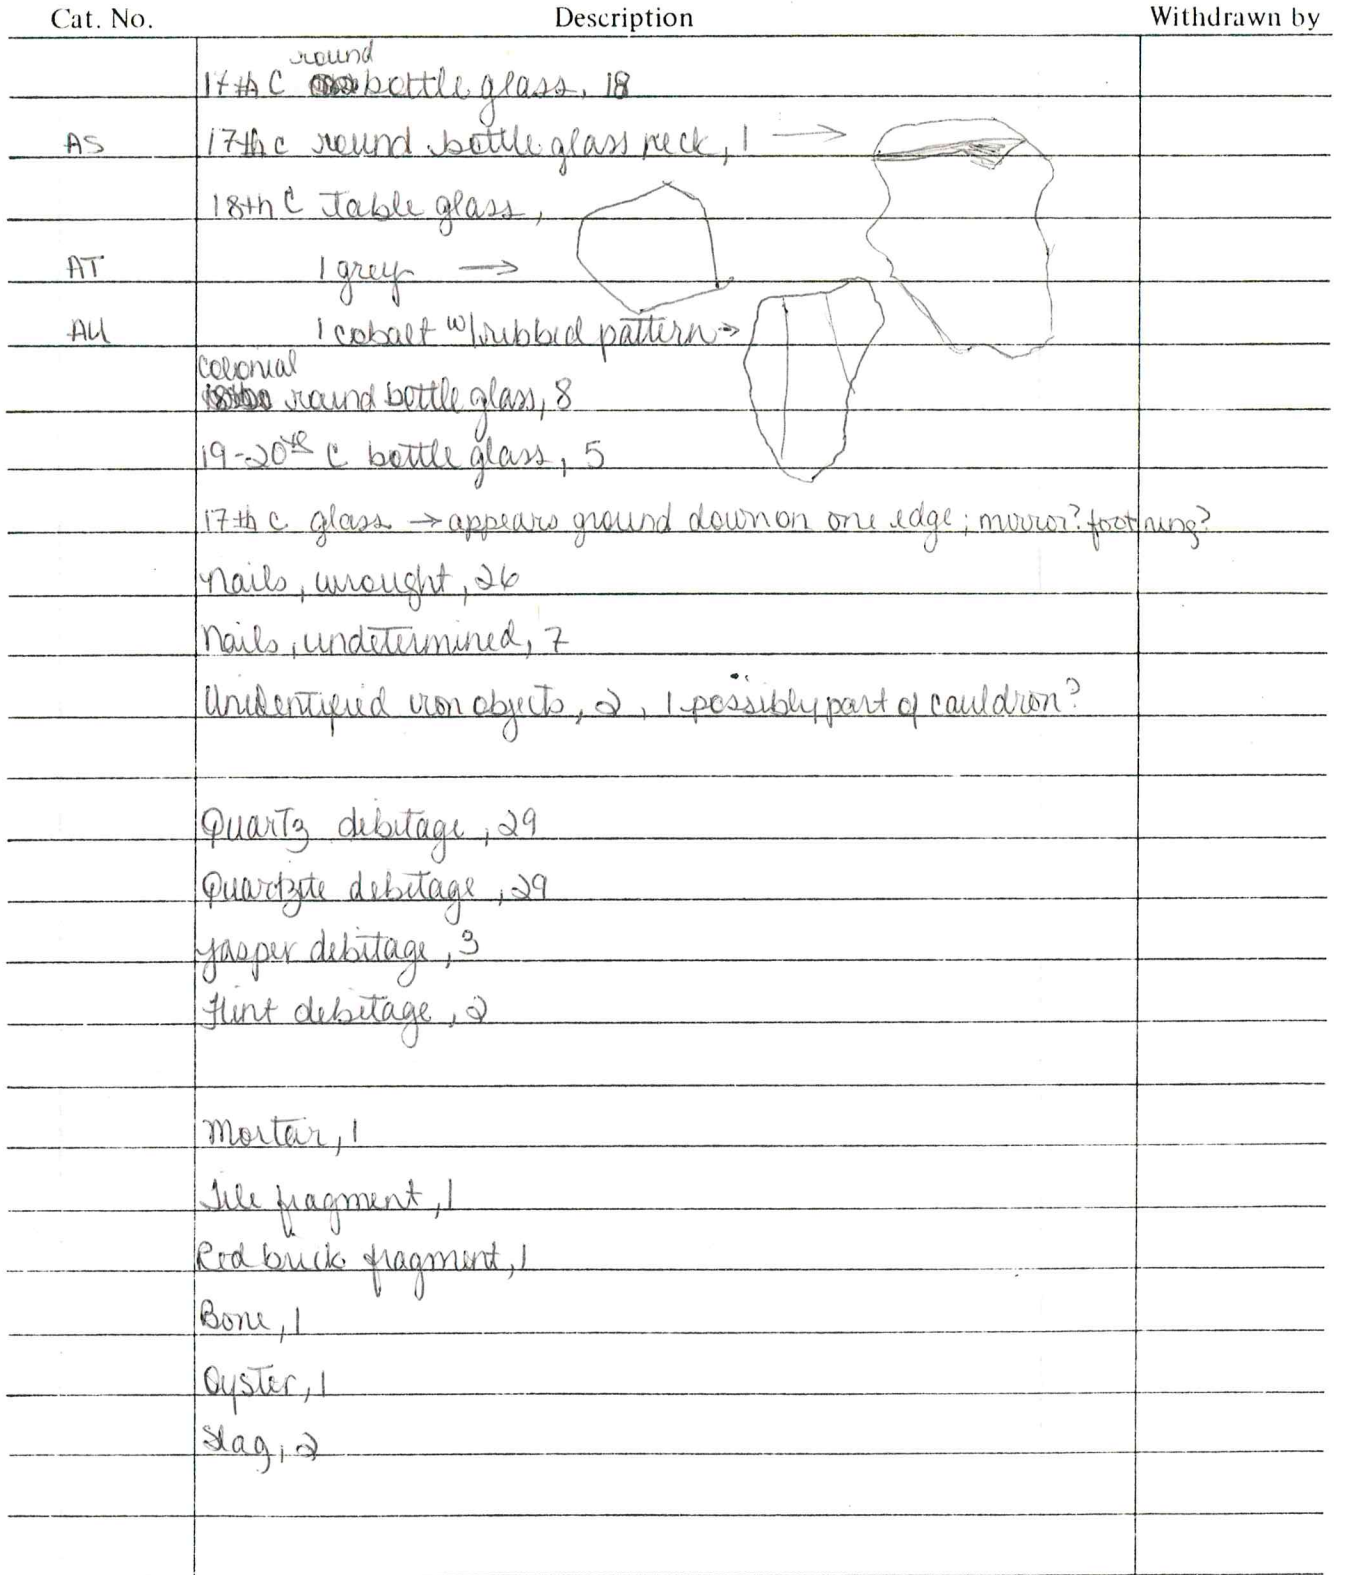 Cat. No. Description Withdrawn by
round
17th C bottle glass, 18
AS 17th c round bottle glass neck, 1 →
18th C Table glass,
AT 1 grey →
AU 1 cobalt w/ribbed pattern →
colonial
round bottle glass, 8
19-20th C bottle glass, 5
17th c. glass → appears ground down on one edge; mirror? foot ring?
Nails, wrought, 26
Nails, undetermined, 7
Unidentified iron objects, 2, 1 possibly part of cauldron?
Quartz debitage, 29
Quartzite debitage, 29
Jasper debitage, 3
Flint debitage, 2
Mortar, 1
Tile fragment, 1
Red brick fragment, 1
Bone, 1
Oyster, 1
Slag, 2